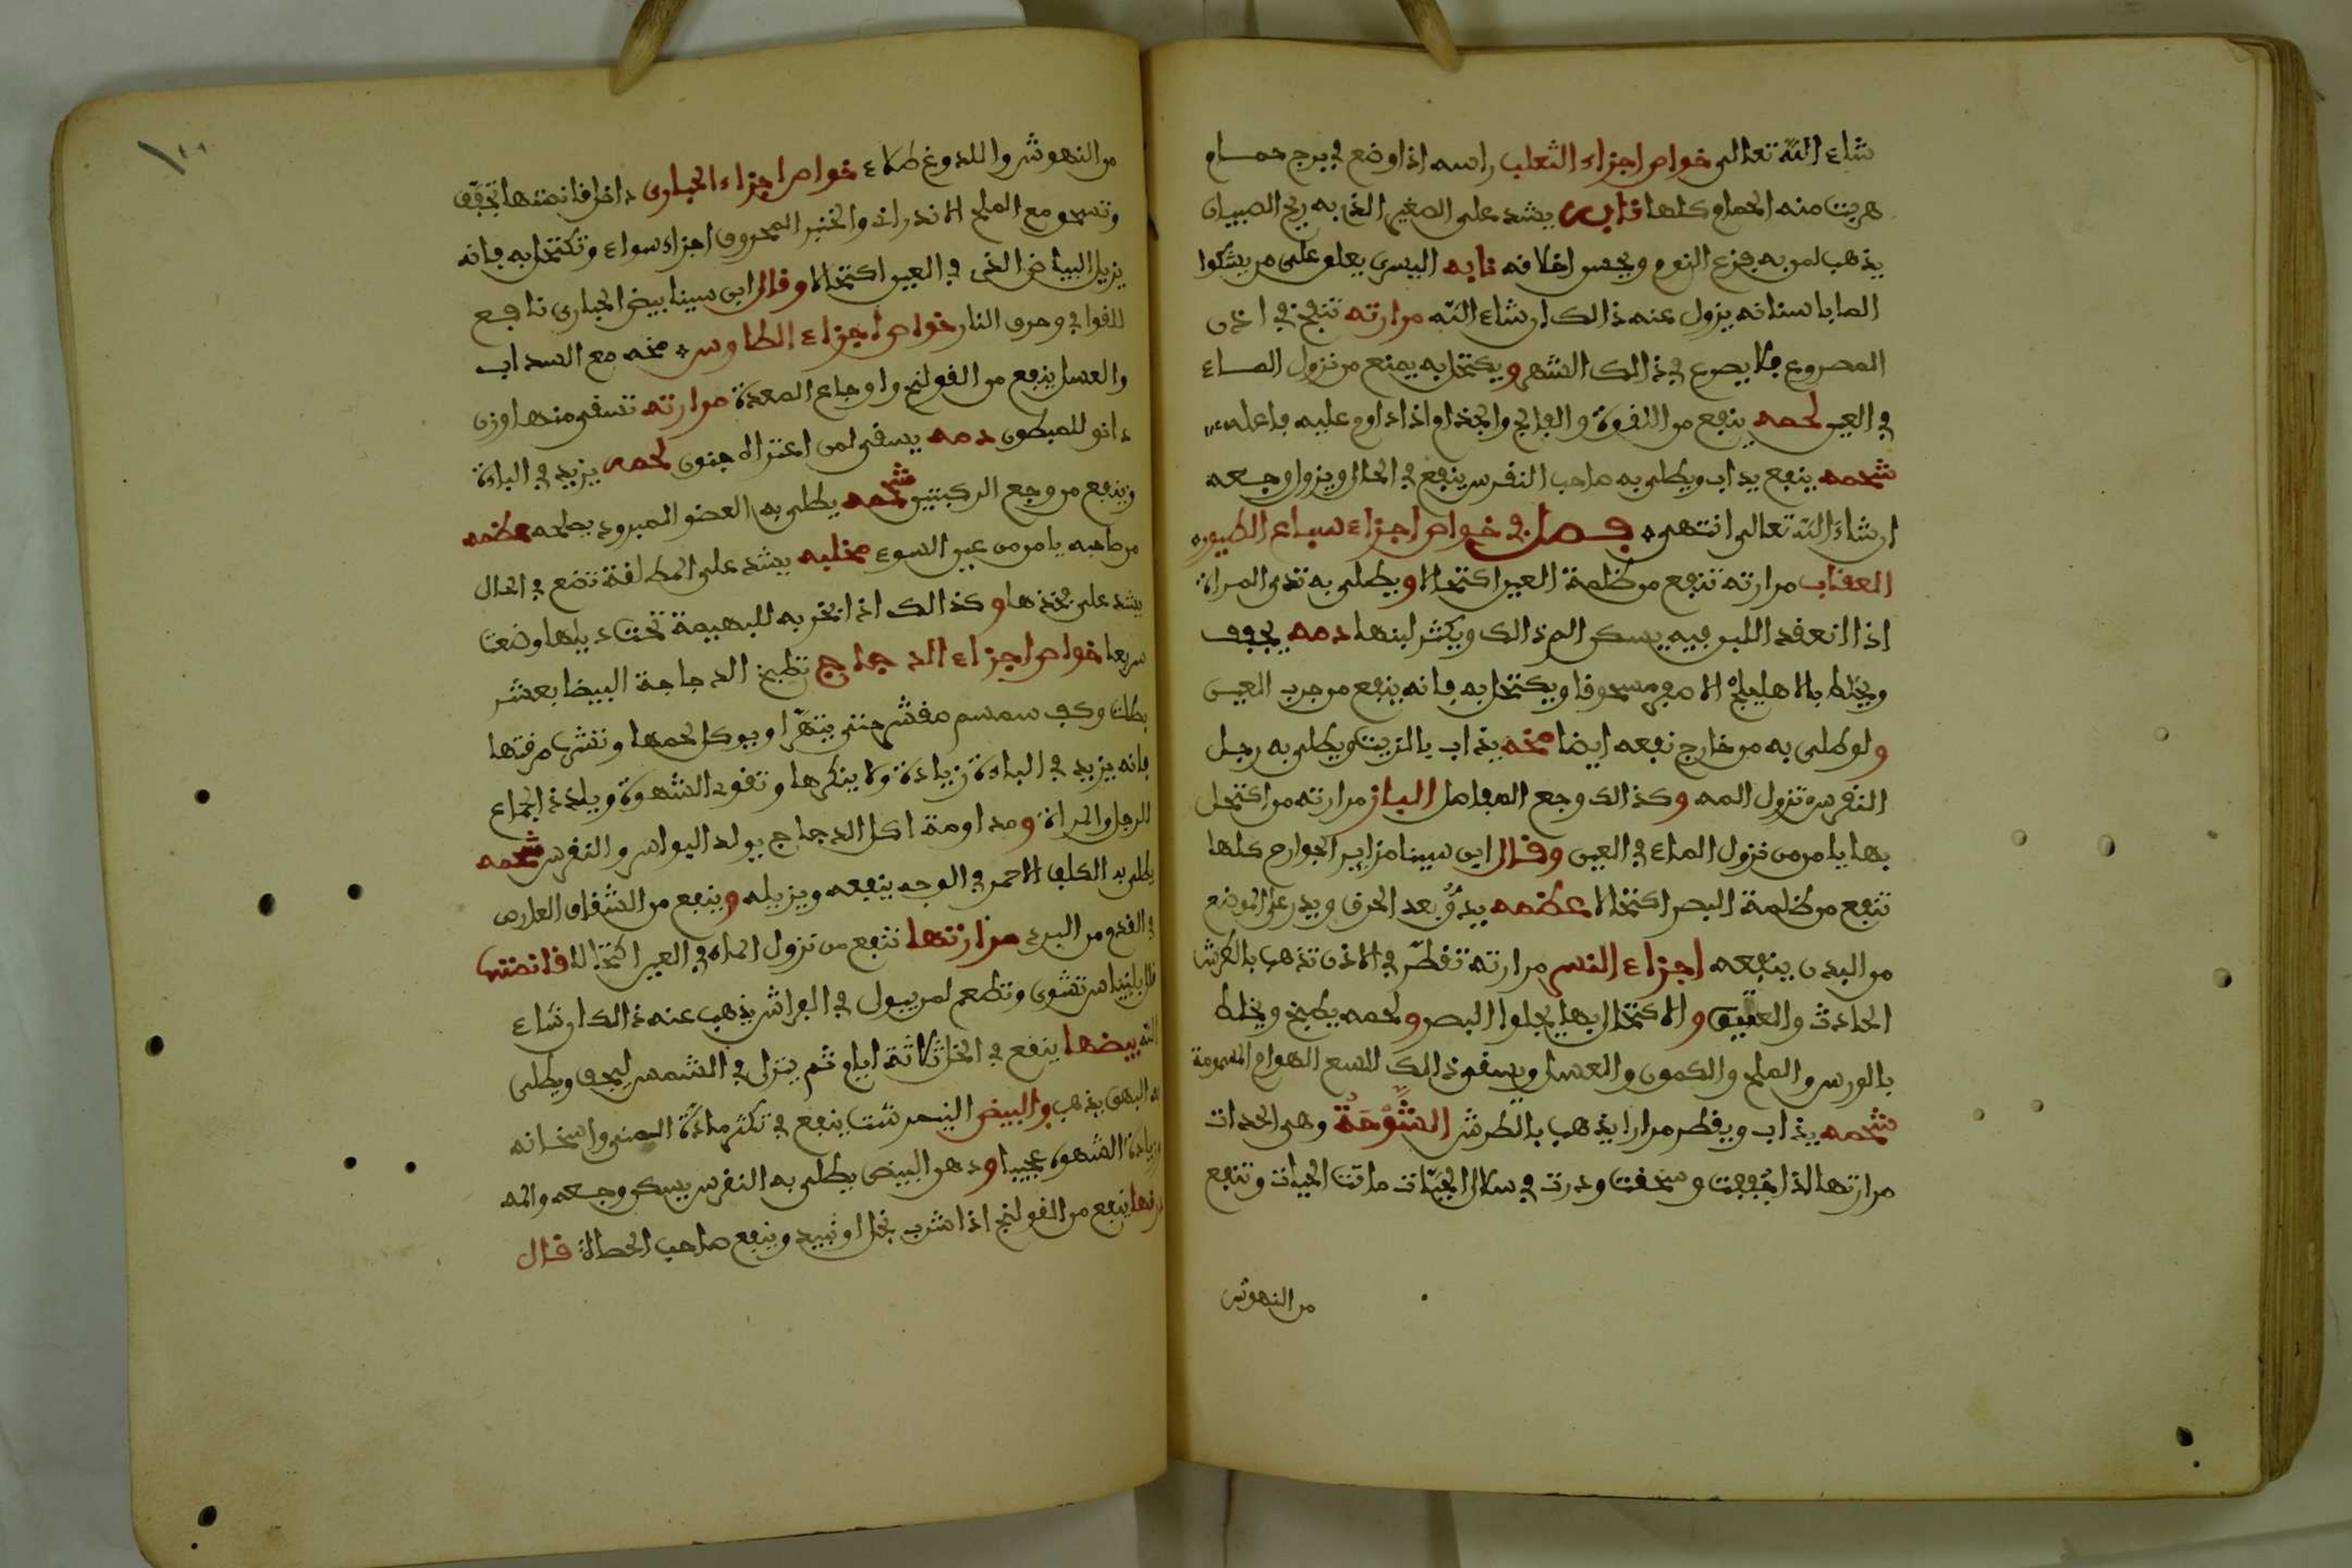 شاء اللّه تعالى خواص اجزاء الثعلب راسه اذا وضع في برج حمام
هربت منه الحمام كلها نابه يشد على الصغير الذى به ريح الصبيان
يذهب لمن به فزع النوم ويحسن اخلافه نابه اليسرى يعلق على من يشكوا
الصا باسنانه يزول عنه ذالك ان شاء اللّه مرارته تنفخ في اذن
المصروع فلا يصرع في ذالك الشهر ويكتحل به يمنع من نزول الماء
في العين لحمه ينفع من اللقوة والفالج والجذام اذا داوم عليه فاعله
شحمه ينفع يذاب ويطلى به صاحب النقرس ينفع في الحال ويزول وجعه
ان شاء اللّه تعالى انتهى فصل في خواص اجزاء سباع الطيور
العقاب مرارته تنفع من ظلمة العين اكتحالا ويطلى به ثدى المراة
اذا انعقد اللبن فيه يسكن الم ذالك ويكثر لبنها دمه يجفف
ويخلط بالاهليلج الاصفر مسحوقا ويكتحل به فانه ينفع من جرب العين
ولو طلى به من خارج نفعه ايضا مخه يذاب بالزيت ويطلى به رجل
النقرس تزول المه وكذالك وجع المفاصل الباز مرارته من اكتحل
بها يامن من نزول الماء في العين وقال ابن سينا مزاير الجوارح كلها
تنفع من ظلمة البصر اكتحالا عظمه يدقّ بعد الحرق ويذر على الموضع
من البدن ينفعه اجزاء النسر مرارته تقطّر في الاذن تذهب بالطرش
الحادث والعتيق والاكتحال بها يجلوا البصر ولحمه يطبخ ويخلط
بالورس والملح والكمون والعسل ويسقى ذالك للسع الهوام المسمومة
شحمه يذاب ويقطر مرارا يذهب بالطرش الشّوحة وهى الحدات
مرارتها اذا جففت وسحقت ودرت في سلال الحيّات ماتت الحيات وتنفع
من النهوش
من النهوش واللدوغ طلاء خواص اجزاء الحبارى داخل قانصتها تجفّف
وتسحق مع الملح الاندراني والخبز المحروق اجزاء سواء وتكتحل به فانه
يزيل البياض الذى في العين اكتحالا وقال ابن سينا بيض الحبارى نافع
للقوابي وحرق النار خواص اجزاء الطاوس مخه مع السداب
والعسل ينفع من القولنج واوجاع المعدة مرارته تسقى منها وزن
دانق للمبطون دمه يسقى لمن اعتراه جنون لحمه يزيد في الباءة
وينفع من وجع الركبتين شحمه يطلى به العضو المبرود يصلحه عظمه
من صاحبه يامن من عين السوء مخلبه يشد على المطلقة تضع في الحال
يشد على فخذها وكذالك اذا بخر به للبهيمة تحت ذيلها وضعت
سريعا خواص اجزاء الدجاج تطبخ الدجاجة البيضا بعشر
بصلات وكف سمسم مقشر حتى يتهرّا ويوكل لحمها وتشرب مرقتها
فانه يزيد في الباءة زيادة ولا ينكرها وتقوى الشهوة ويلذذ الجماع
للرجل والمراة ومداومة اكل الدجاج يولد البواسر والنقرس شحمه
يطلى به الكلف الاحمر في الوجه ينفعه ويزيله وينفع من الشقاق العارض
في القدم من البرد مرارتها تنفع من نزول الماء في العين اكتحالا قانصتها
تشوى وتطعم لمن يبول في الفراش يذهب عنه ذالك ان شاء
اللّه بيضها ينقع في الخل ثلاثة ايام ثم ينزل في الشمس ليجف ويطلى
به البهق يذهب والبيض النيمرشت ينفع في تكثر مادّة المنى واسخانه
وزيادة الشهوة عجيبا ودهن البيض يطلى به النقرس يسكن وجعه والمه
ذرقها ينفع من القولنج اذا شرب بخل او نبيد وينفع صاحب الحصاة قال